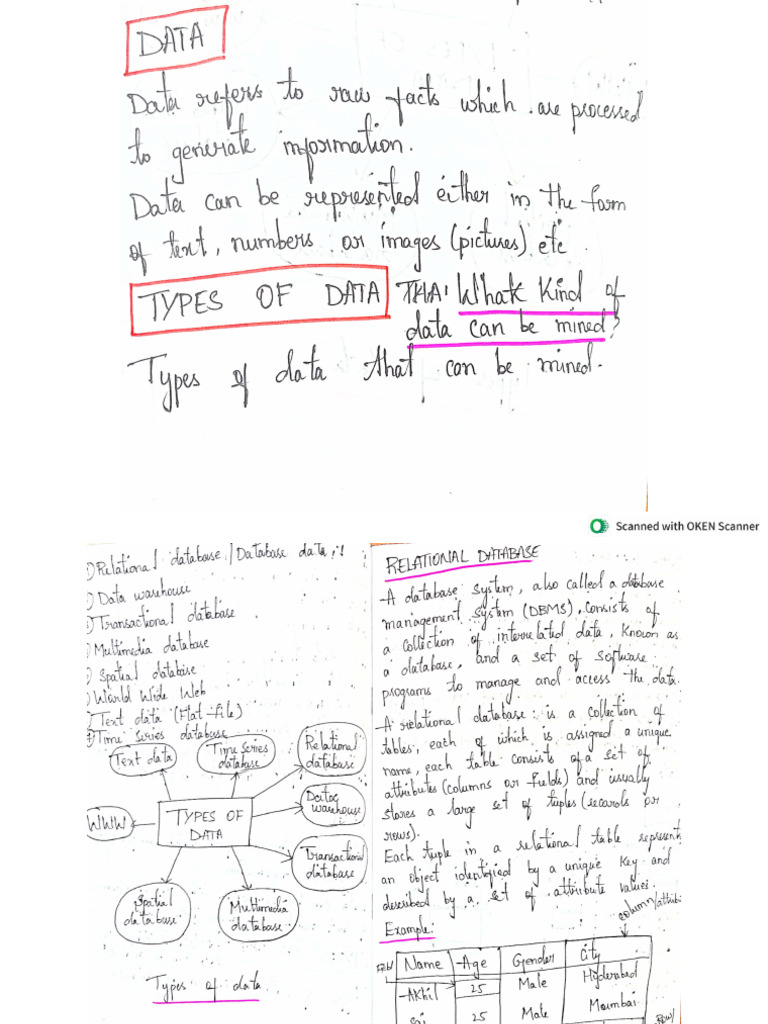 DATA
Data refers to raw facts which are processed
to generate information.
Data can be represented either in the form
of text, numbers or images (pictures) etc.
TYPES OF DATA
What Kind of
data can be mined?
Types of data that can be mined.
Scanned with OKEN Scanner
1) Relational database / Database data
) Data warehouse
) Transactional database
) Multimedia database
) Spatial database
) World Wide Web
) Text data (Flat-file)
) Time Series database
Text data
Time Series
database
Relational
database
Data
warehouse
WWW
TYPES OF
DATA
Transactional
database
Spatial
database
Multimedia
database
Types of data
RELATIONAL DATABASE
-A database system, also called a database
management system (DBMS), consists of
a collection of interrelated data, known as
a database, and a set of software
programs to manage and access the data.
-A relational database: is a collection of
tables, each of which is assigned a unique
name, each table consists of a set of
attributes (columns or fields) and usually
stores a large set of tuples (records or
rows).
Each tuple in a relational table represent
an object identified by a unique key and
described by a set of attribute values.
column/attrib
Example:
Name Age Gender City
Akhil 25 Male Hyderabad
Sai 25 Male Mumbai